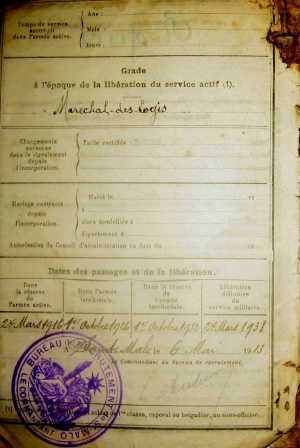 Temps du service
accompli
dans l'armée active.
Ans :
Mois :
Jours :
Grade
à l'époque de la libération du service actif (1).
Maréchal-des-logis
Changements
survenus
dans le signalement
depuis
l'incorporation.
Taille rectifiée :
Mariage contracté
depuis
l'incorporation.
Marié le 19
à
alors domiciliée à
département d
Autorisation du Conseil d'administration en date du
Dates des passages et de la libération.
Dans
la réserve
de
l'armée active.
Dans l'armée
territoriale.
Dans la réserve
de
l'armée
territoriale.
Libération
définitive
du
service militaire.
24 Mars 1916 1er Octobre 1926 1er Octobre 1932 24 Mars 1938
A St Malo, le 6 Mai 19
Commandant du Bureau de recrutement,
BUREAU DE RECRUTEMENT
MALO
(1) classe, caporal ou brigadier, ou sous-officier.